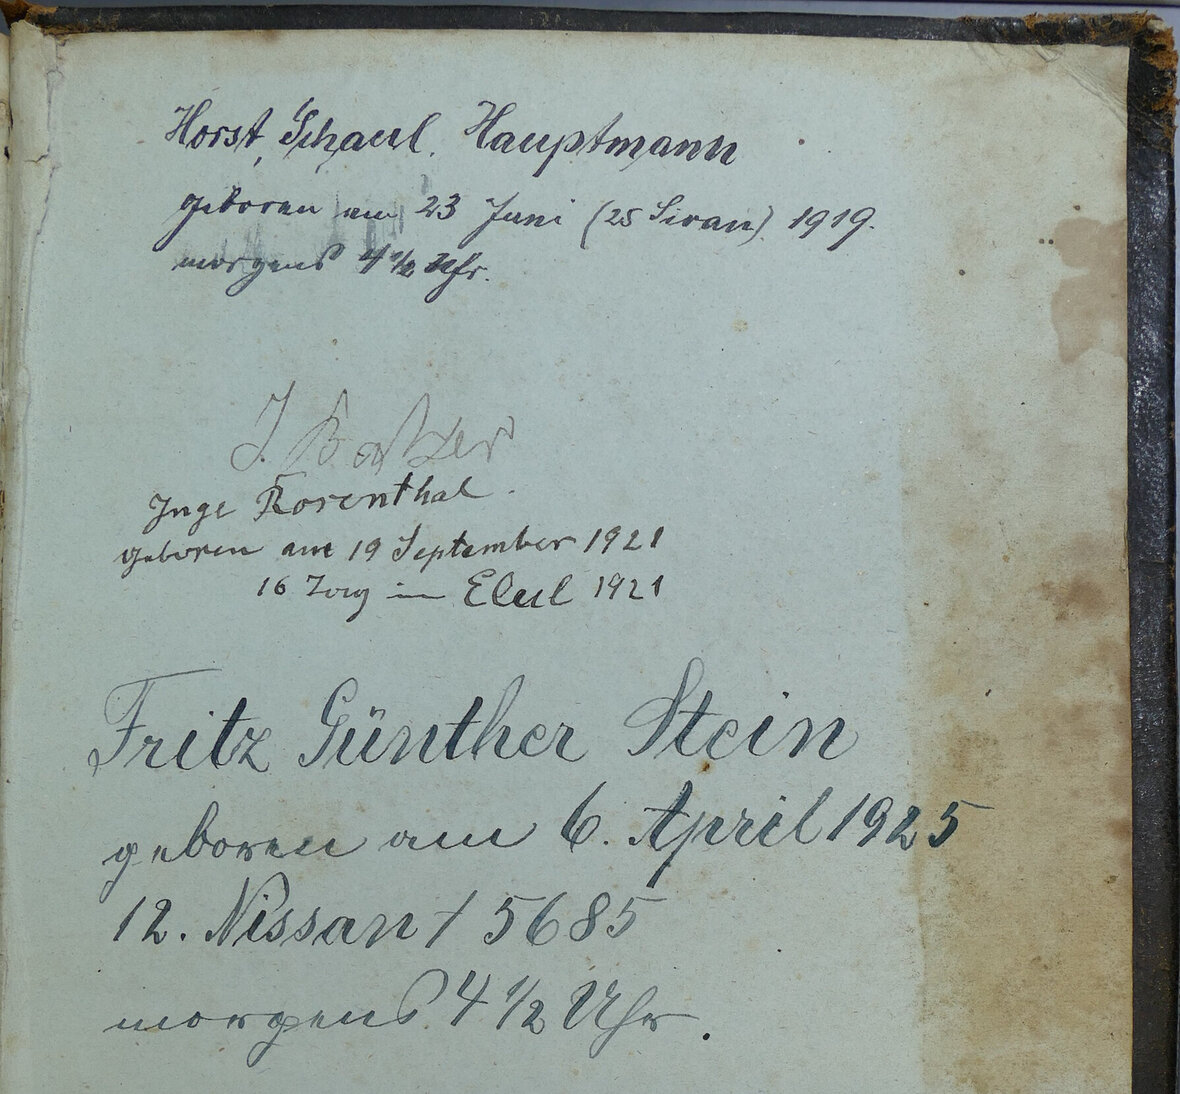 Horst, Schaul. Hauptmann
geboren am 23 Juni (25 Sivan). 1919.
morgens 4 1/2 Uhr.
J.
Inge Rosenthal.
geboren am 19 September 1921
16 Tag im Elul 1921
Fritz Günther Stein
geboren am 6. April 1925
12. Nissan / 5685
morgens 4 1/2 Uhr.